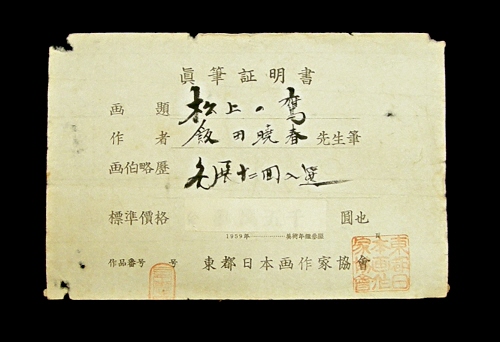 眞筆証明書
画題 松上の鷲
作者 飯田曉春 先生筆
画伯略歴 展十二回入選
標準價格 圓也
1959年
作品番号 号 東都日本画作家協會
東都日本画作家協會